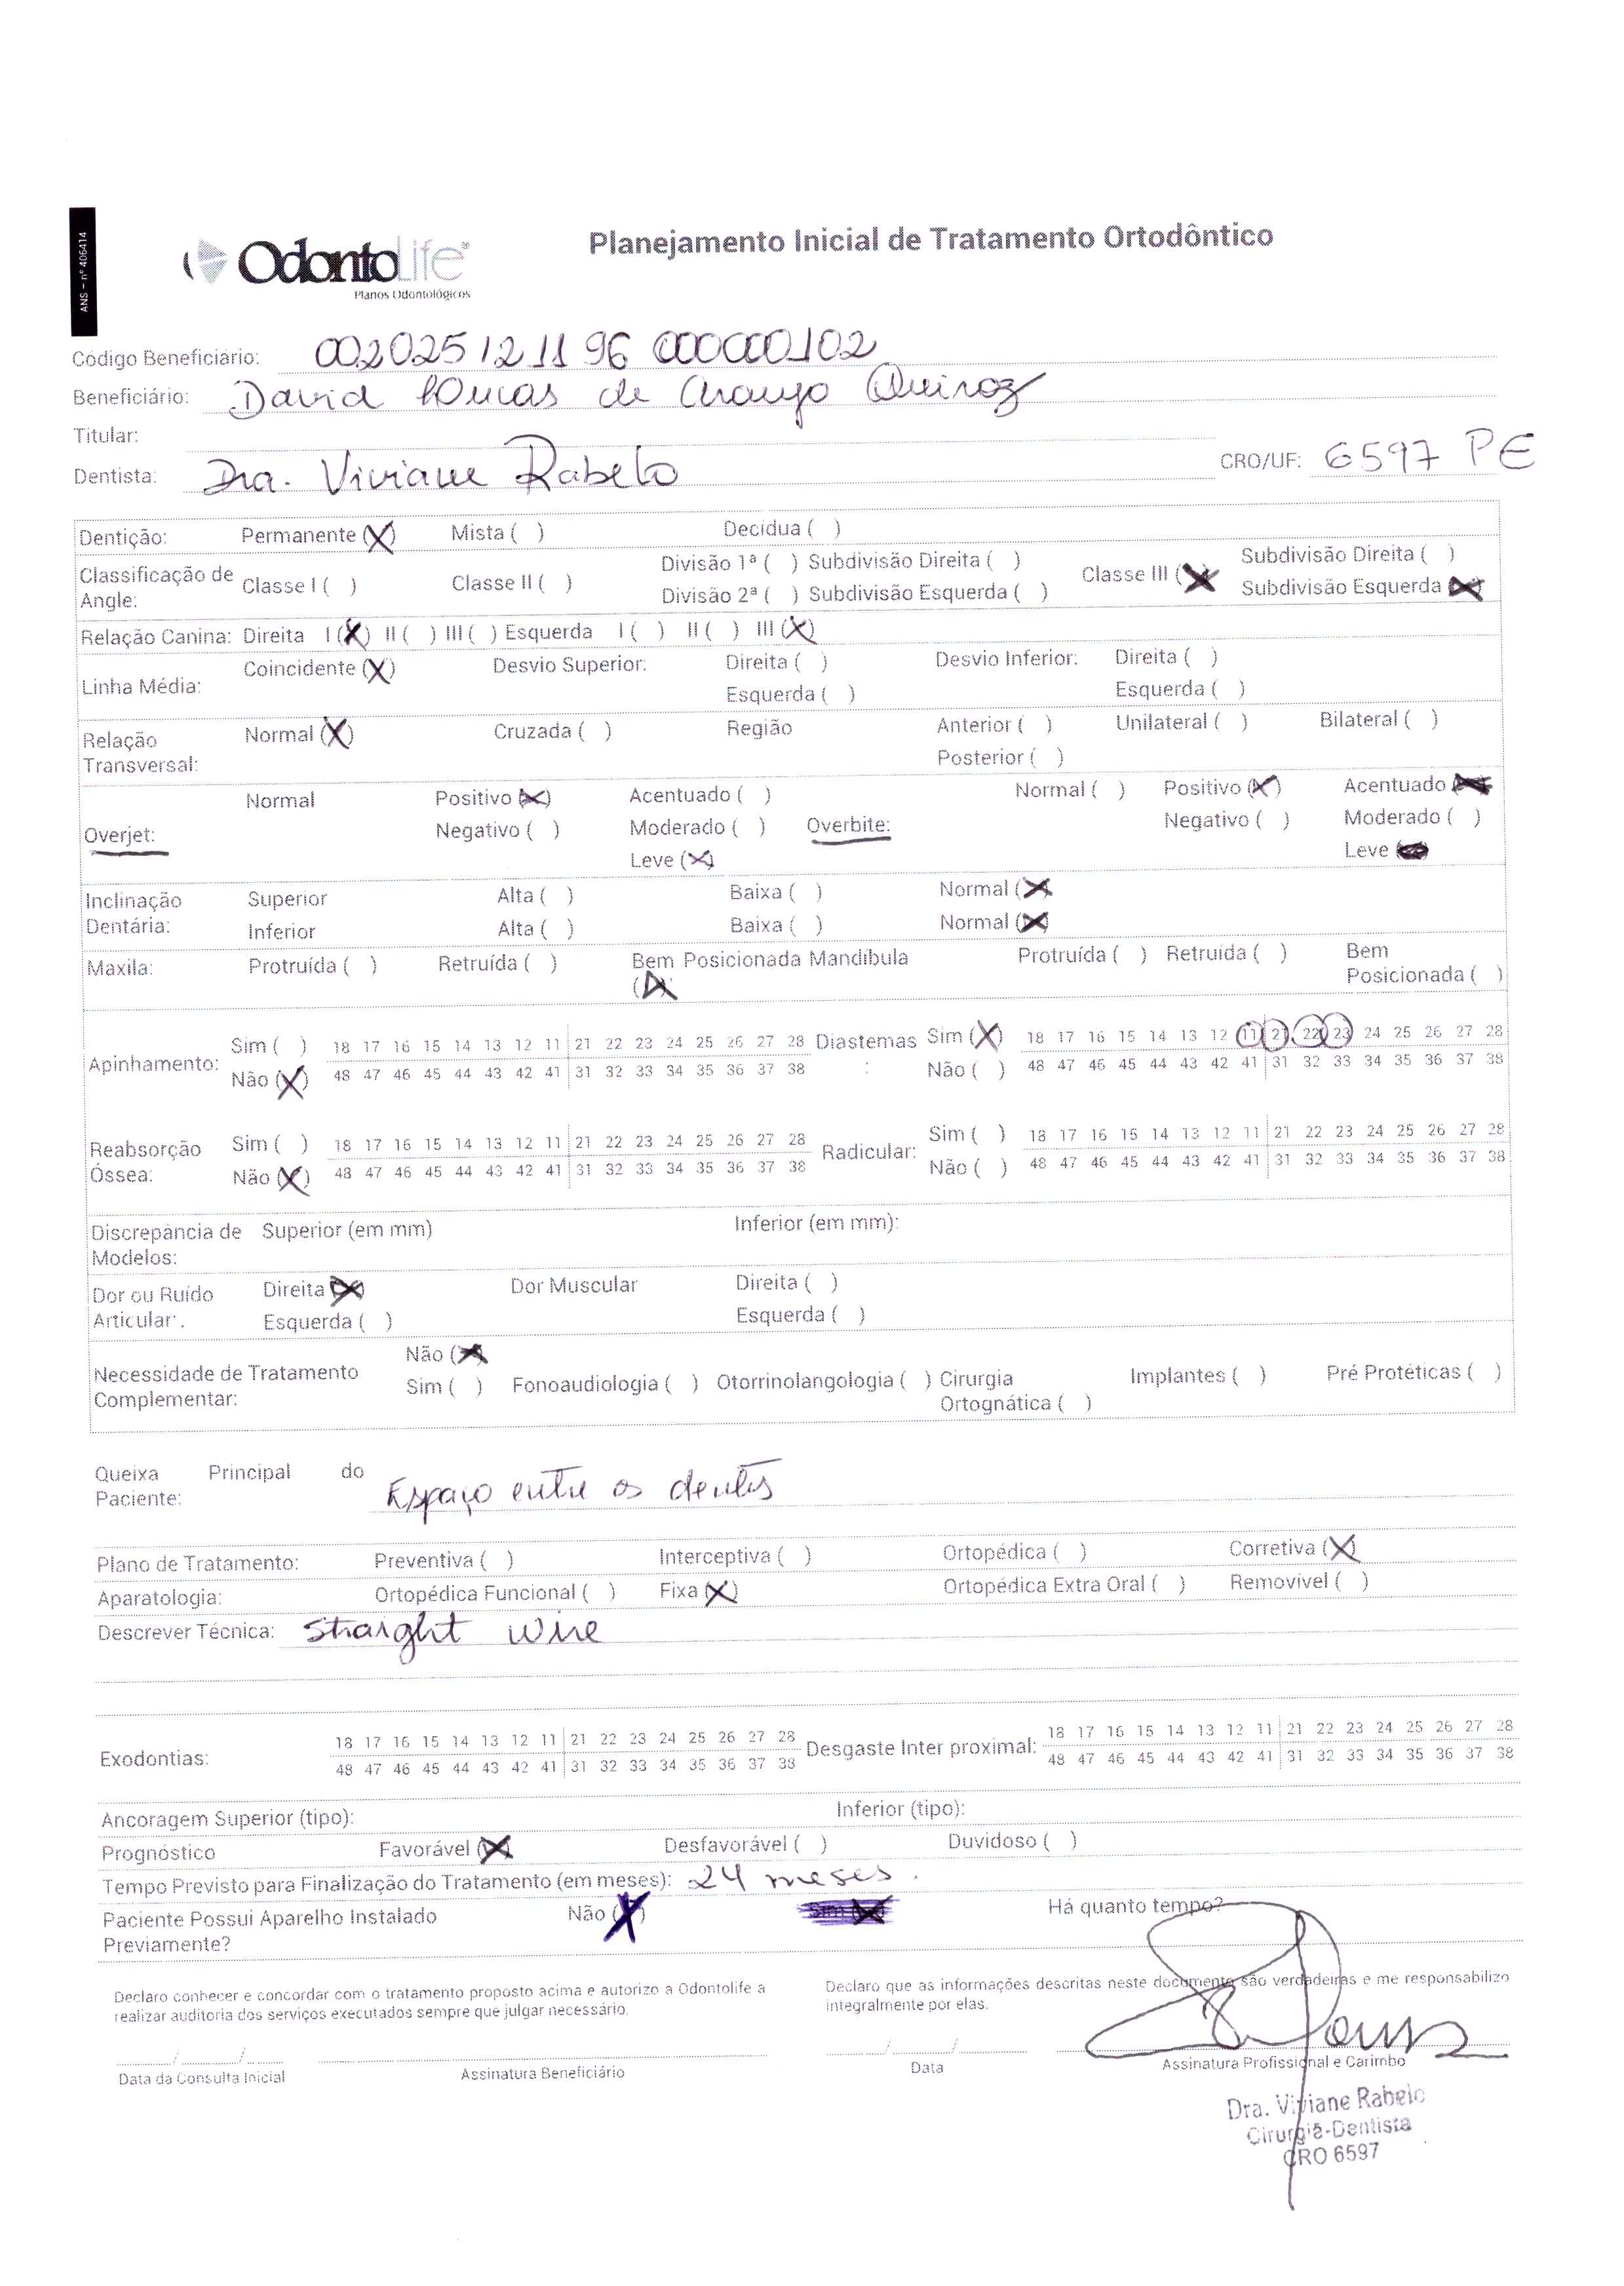 ANS – nº 406414
OdontoLife®
Planos Odontológicos
Planejamento Inicial de Tratamento Ortodôntico
Código Beneficiário: 00202512 11 96 000000102
Beneficiário: David de Araujo Queiroz
Titular:
Dentista: Dra. Viviane Rabelo CRO/UF: 6597 PE
Dentição: Permanente (X) Mista ( ) Decídua ( )
Classificação de Angle: Classe I ( ) Classe II ( ) Divisão 1ª ( ) Subdivisão Direita ( ) Classe III (X) Subdivisão Direita ( )
Divisão 2ª ( ) Subdivisão Esquerda ( ) Subdivisão Esquerda (X)
Relação Canina: Direita I (X) II ( ) III ( ) Esquerda I ( ) II ( ) III (X)
Linha Média: Coincidente (X) Desvio Superior: Direita ( ) Desvio Inferior: Direita ( )
Esquerda ( ) Esquerda ( )
Relação Transversal: Normal (X) Cruzada ( ) Região Anterior ( ) Unilateral ( ) Bilateral ( )
Posterior ( )
Overjet: Normal Positivo (X) Acentuado ( ) Overbite: Normal ( ) Positivo (X) Acentuado (X)
Negativo ( ) Moderado ( ) Negativo ( ) Moderado ( )
Leve (X) Leve
Inclinação Dentária: Superior Alta ( ) Baixa ( ) Normal (X)
Inferior Alta ( ) Baixa ( ) Normal (X)
Maxila: Protruída ( ) Retruída ( ) Bem Posicionada (X) Mandíbula Protruída ( ) Retruída ( ) Bem Posicionada ( )
Apinhamento: Sim ( ) 18 17 16 15 14 13 12 11 21 22 23 24 25 26 27 28 Diastemas: Sim (X) 18 17 16 15 14 13 12 11 21 22 23 24 25 26 27 28
Não (X) 48 47 46 45 44 43 42 41 31 32 33 34 35 36 37 38 Não ( ) 48 47 46 45 44 43 42 41 31 32 33 34 35 36 37 38
Reabsorção Óssea: Sim ( ) 18 17 16 15 14 13 12 11 21 22 23 24 25 26 27 28 Radicular: Sim ( ) 18 17 16 15 14 13 12 11 21 22 23 24 25 26 27 28
Não (X) 48 47 46 45 44 43 42 41 31 32 33 34 35 36 37 38 Não ( ) 48 47 46 45 44 43 42 41 31 32 33 34 35 36 37 38
Discrepância de Modelos: Superior (em mm) Inferior (em mm):
Dor ou Ruído Articular: Direita (X) Dor Muscular Direita ( )
Esquerda ( ) Esquerda ( )
Necessidade de Tratamento Complementar: Não (X)
Sim ( ) Fonoaudiologia ( ) Otorrinolangologia ( ) Cirurgia Ortognática ( ) Implantes ( ) Pré Protéticas ( )
Queixa Principal do Paciente: Espaço entre os dentes
Plano de Tratamento: Preventiva ( ) Interceptiva ( ) Ortopédica ( ) Corretiva (X)
Aparatologia: Ortopédica Funcional ( ) Fixa (X) Ortopédica Extra Oral ( ) Removível ( )
Descrever Técnica: Straight wire
Exodontias: 18 17 16 15 14 13 12 11 21 22 23 24 25 26 27 28 Desgaste Inter proximal: 18 17 16 15 14 13 12 11 21 22 23 24 25 26 27 28
48 47 46 45 44 43 42 41 31 32 33 34 35 36 37 38 48 47 46 45 44 43 42 41 31 32 33 34 35 36 37 38
Ancoragem Superior (tipo): Inferior (tipo):
Prognóstico Favorável (X) Desfavorável ( ) Duvidoso ( )
Tempo Previsto para Finalização do Tratamento (em meses): 24 meses.
Paciente Possui Aparelho Instalado Previamente? Não (X) Sim (X) Há quanto tempo?
Declaro conhecer e concordar com o tratamento proposto acima e autorizo a Odontolife a
realizar auditoria dos serviços executados sempre que julgar necessário.
Declaro que as informações descritas neste documento são verdadeiras e me responsabilizo
integralmente por elas.
Data da Consulta Inicial Assinatura Beneficiário Data Assinatura Profissional e Carimbo
Dra. Viviane Rabelo
Cirurgiã-Dentista
CRO 6597